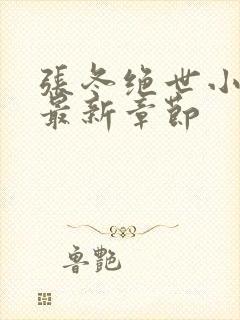 張冬绝世小
最新章節
鲁艷